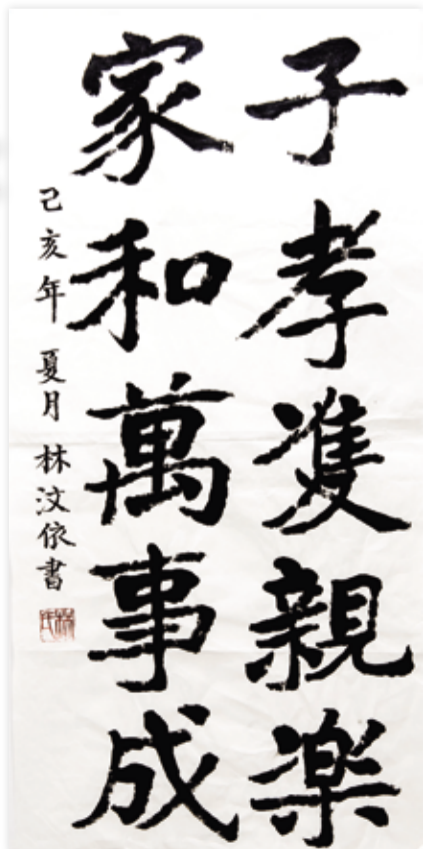 子孝雙親楽
家和萬事成
己亥年 夏月 林汶依書